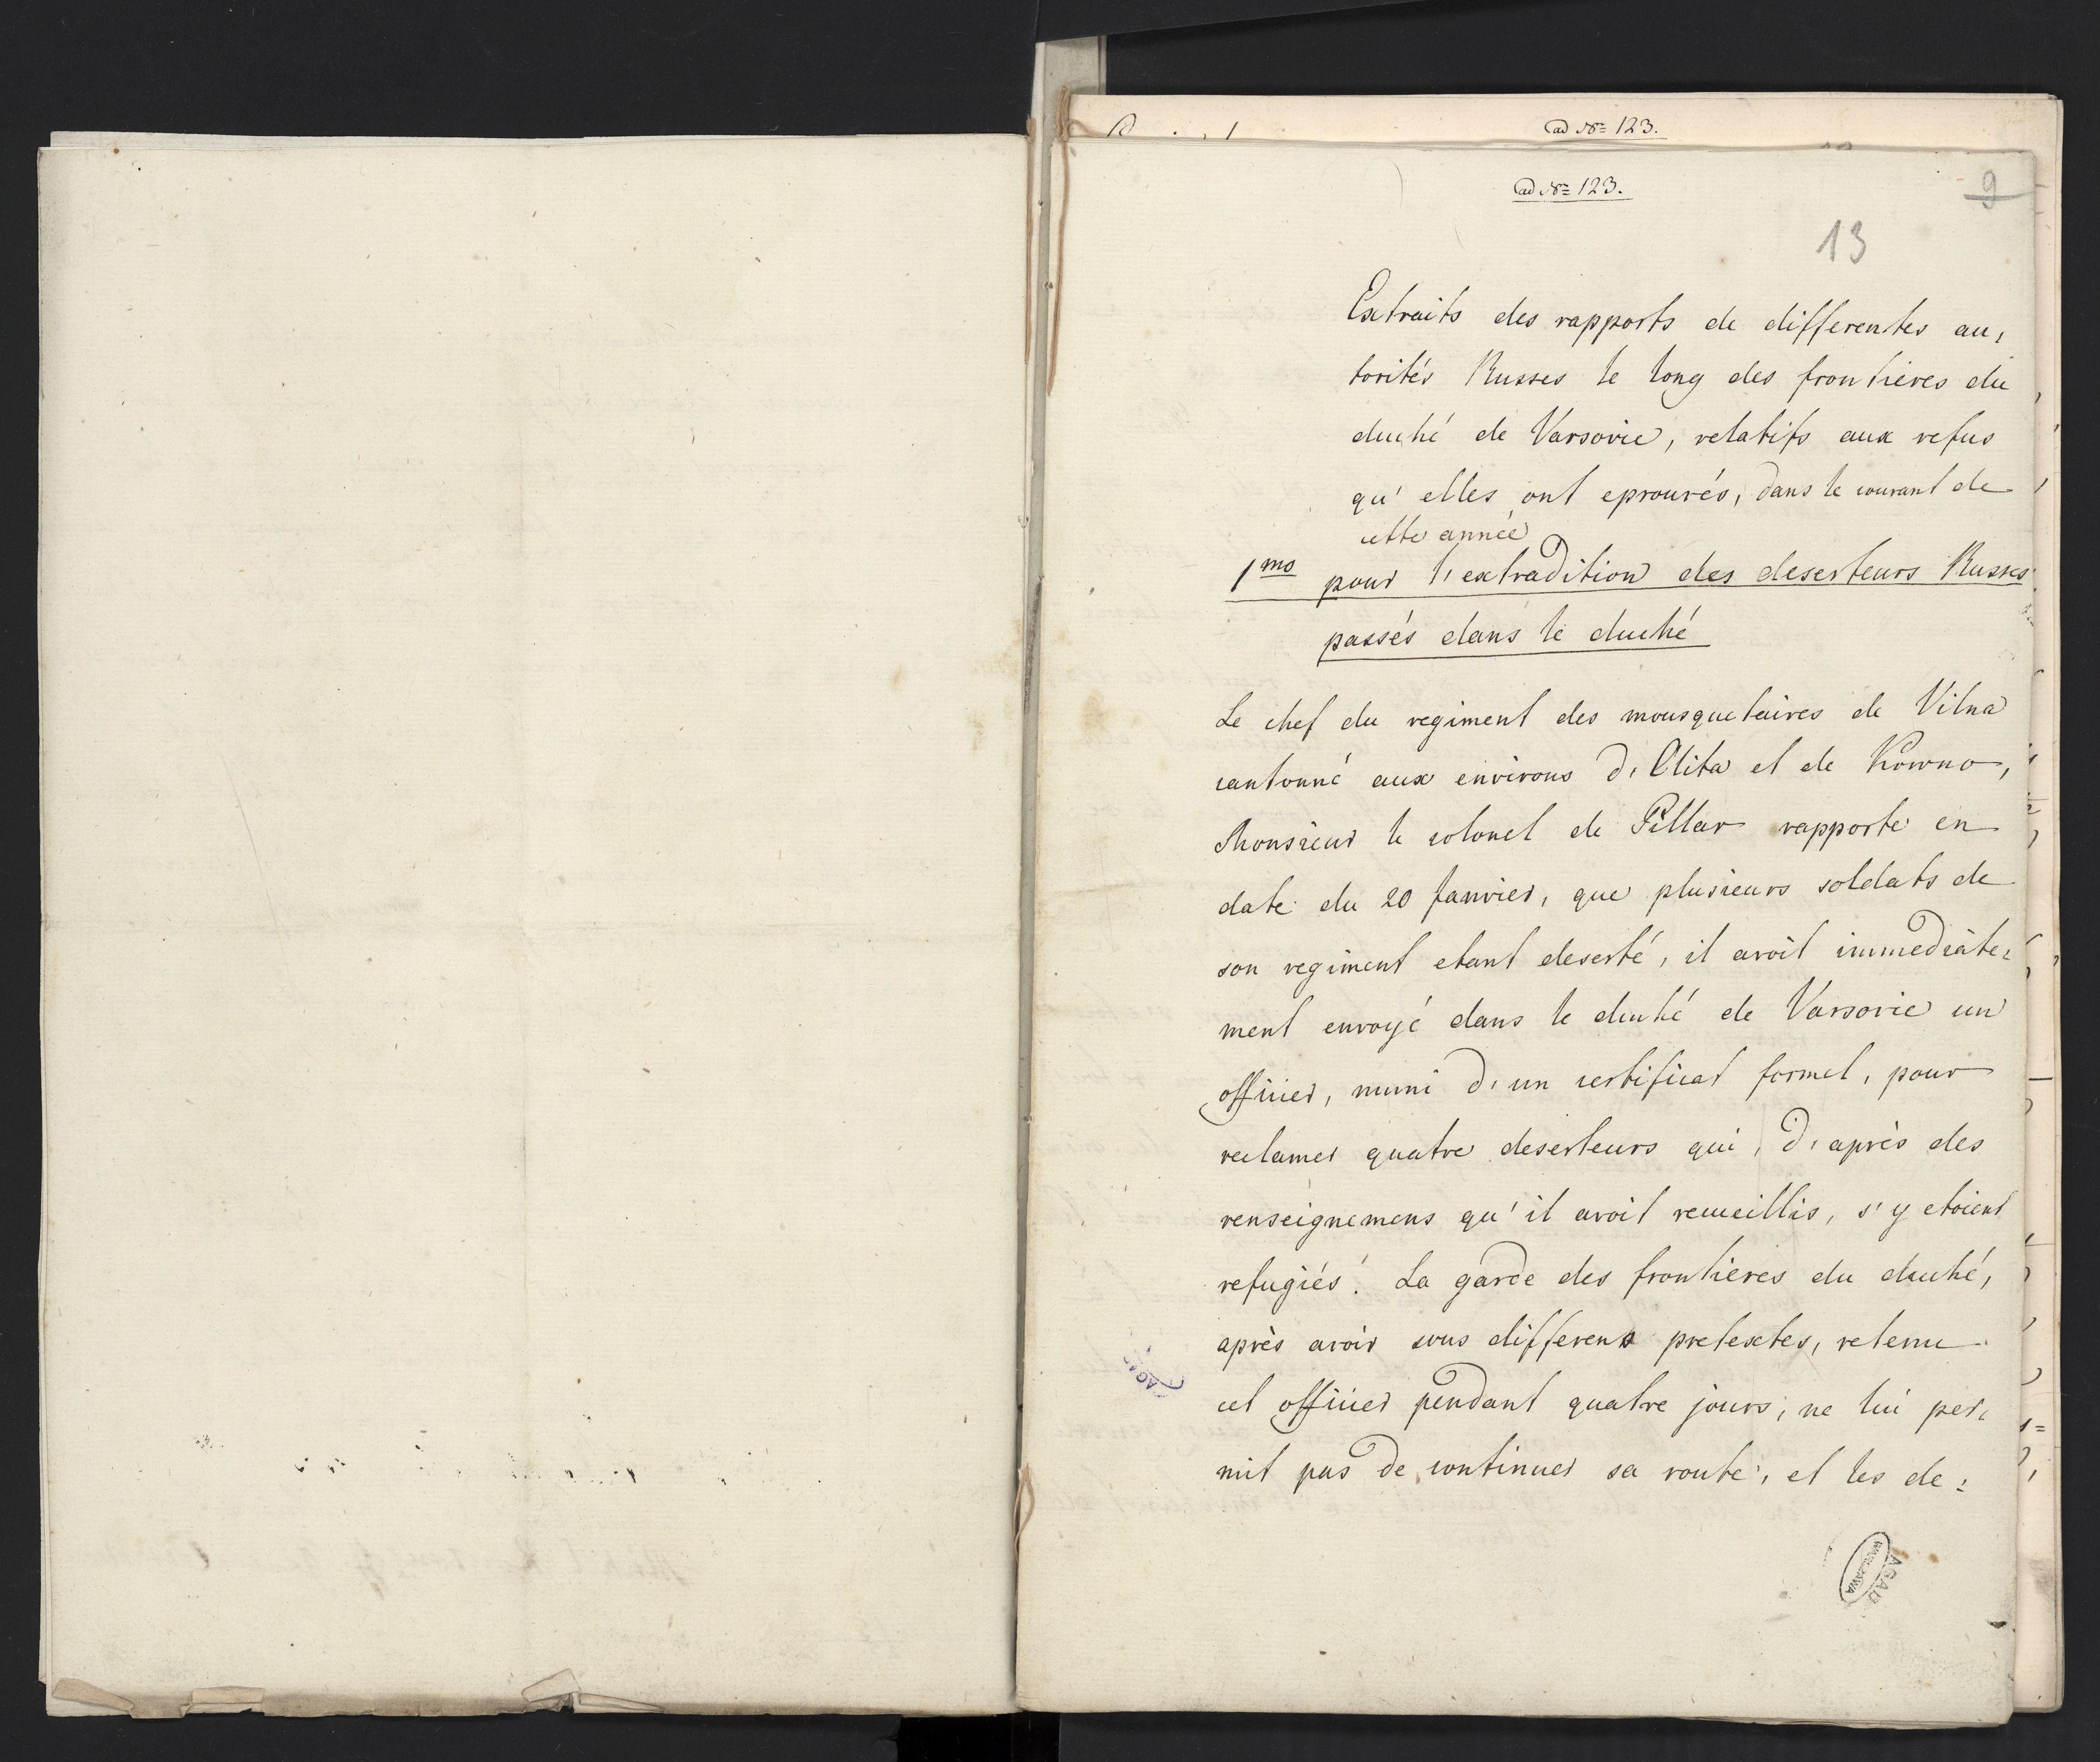 ad Nº 123.
ad Nº 123.
9
13
Extraits des rapports de differentes au,
torités Russes le long des frontières du
duché de Varsovie, relatifs aux refus
qu'elles ont eprouvés, dans le courant de
cette année
1mo pour l'extradition des deserteurs Russes
passés dans le duché
Le chef du regiment des mousquetaires de Vilna
cantonné aux environs d'Olita et de Kowno,
Monsieur le colonel de Pillar rapporte en
date du 20 Janvier, que plusieurs soldats de
son regiment etant deserté, il avoit immediate,
ment envoyé dans le duché de Varsovie un
officier, muni d'un certificat formel, pour
reclamer quatre deserteurs qui, d'après des
renseignemens qu'il avoit recueillis, s'y etoient
refugiés. La garde des frontières du duché,
après avoir sous differens pretextes, retenu
cet officier pendant quatre jours, ne lui per,
mit pas de continuer sa route, et les de:
AGAD
WARSZAWA